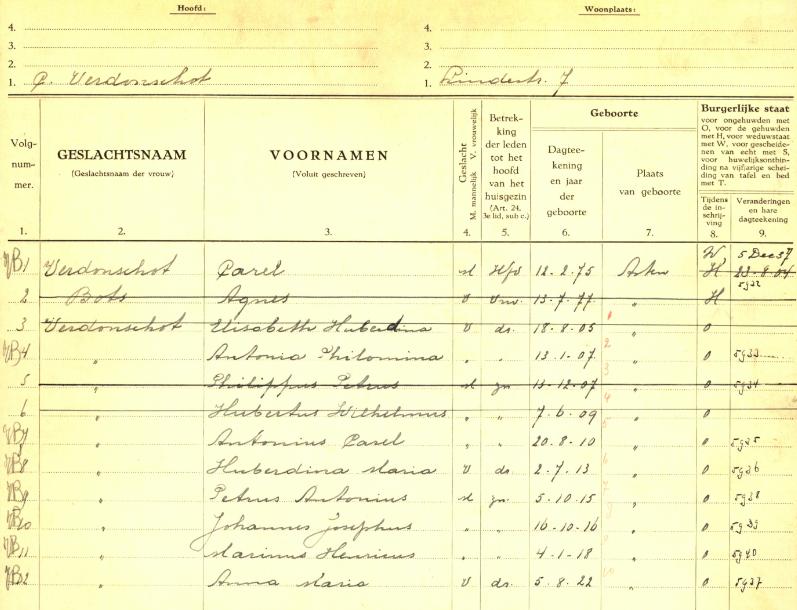 Hoofd: Woonplaats:
4. 4.
3. 3.
2. 2.
1. C. Verdonschot 1. Lindestr. 7
Volg-
num-
mer.
GESLACHTSNAAM
(Geslachtsnaam der vrouw)
VOORNAMEN
(Voluit geschreven)
Geslacht
M. mannelijk V. vrouwelijk
Betrek-
king
der leden
tot het
hoofd
van het
huisgezin
(Art. 24,
3e lid, sub c.)
Geboorte
Dagtee-
kening
en jaar
der
geboorte
Plaats
van geboorte
Burgerlijke staat
voor ongehuwden met
O, voor de gehuwden
met H, voor weduwstaat
met W, voor gescheide-
nen van echt met S,
voor huwelijksontbin-
ding na vijfjarige schei-
ding van tafel en bed
met T.
Tijdens
de in-
schrij-
ving
Veranderingen
en hare
dagteekening
1. 2. 3. 4. 5. 6. 7. 8. 9.
W 5 Dec 37
VB 1 Verdonschot Carel M Hfd 12-2-75 Asten H 23-8-04
2 Bots Agnes V Vrw. 13-7-77 " H 5932
3 Verdonschot Elisabeth Huberdina V dr. 18-8-05 " O
VB 4 " Antonia Philomina " " 13-1-07 " O 5933
5 " Philippus Petrus M zn 13-12-07 " O 5934
6 " Hubertus Wilhelmus " " 7-6-09 " O
VB 7 " Antonius Carel " " 20-8-10 " O 5935
VB 8 " Huberdina Maria V dr. 2-7-13 " O 5936
VB 9 " Petrus Antonius M zn. 5-10-15 " O 5938
VB 10 " Johannes Josephus " " 16-10-16 " O 5939
VB 11 " Marinus Henricus " " 4-1-18 " O 5940
VB 12 " Anna Maria V dr. 5-8-22 " O 5937